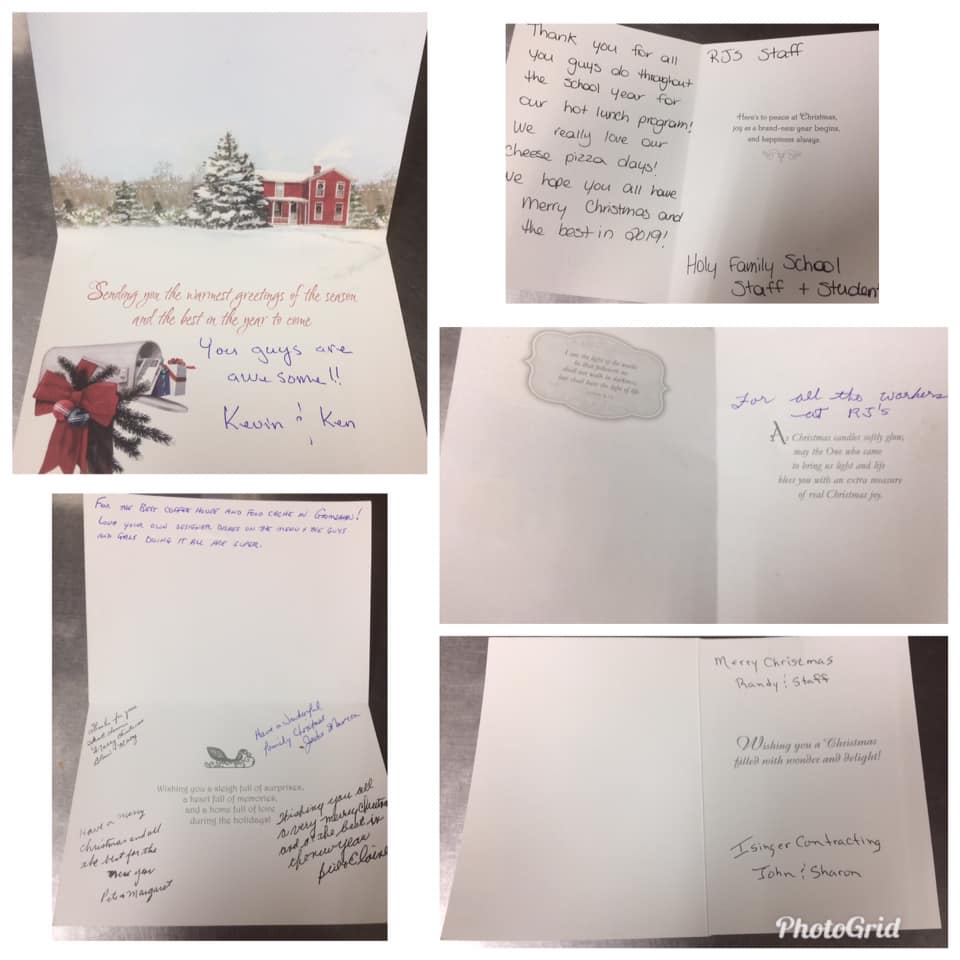 Sending you the warmest greetings of the season
and the best in the year to come
You guys are
awesome!!
Kevin & Ken
Thank you for all
you guys do throughout
the school year for
our hot lunch program!
We really love our
cheese pizza days!
We hope you all have
Merry Christmas and
the best in 2019!
RJS Staff
Here's to peace at Christmas,
joy as a brand-new year begins,
and happiness always.
Holy Family School
Staff + Student
I am the light of the world:
he that followeth me
shall not walk in darkness,
but shall have the light of life.
For all the workers
at RJ's
As Christmas candles softly glow,
may the One who came
to bring us light and life
bless you with an extra measure
of real Christmas joy.
FOR THE BEST COFFEE HOUSE AND FOOD CACHE IN
LOVE YOUR OWN DESIGNER DISHES ON THE MENU & THE GUYS
AND GALS DOING IT ALL ARE SUPER.
Thanks for your
Merry Christmas
Have a Wonderful
Family Christmas
Wishing you a sleigh full of surprises,
a heart full of memories,
and a home full of love
during the holidays!
Have a Merry
Christmas and all
the best for the
new year
Pete & Margaret
Wishing you all
a very merry Christmas
and the best in
the new year
Merry Christmas
Randy & Staff
Wishing you a Christmas
filled with wonder and delight!
Isinger Contracting
John & Sharon
PhotoGrid